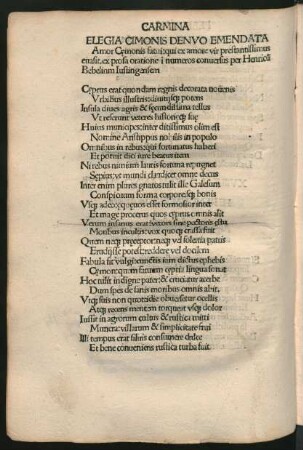 CARMINA
ELEGIA CIMONIS DENVO EMENDATA
Amor Cymonis fatui: qui ex amore vir prestantissimus
euasit. ex prosa oratione in numeros conuersus per Henricū
Bebelium Iustingensem
Cyprus erat quondam regnis decorata nouenis
Vrbibus illustris diuitiisq; potens
Insula diues agris & splendidissima tellus
Vt referunt veteres historieq; sue
Huius municipes inter ditissimus olim est
Nomine Aristippus nobilis in populo
Omnibus in rebusq; fortunatus haberi
Et potuit dici iure beatus item
Ni rebus nimium humanis fortuna repugnet
Sepius: vt mundi claudicet omne decus
Inter enim plures gnatos tulit ille Galesum
Conspicuum forma corporeisq; bonis
Vsq; adeo: quo non esset formosior inter
Et mage procerus quos cyprus omnis alit
Verum insanus erat fatuus sine pectoris
Moribus incultis vox quoq; crassa fuit
Quem neq; preceptor neq; vel solertia patris
Erudijsse potest reddere vel docilem
Fabula sic vulgi demens iam dictus ephebis
Cymon: quem fatuum cypria lingua sonat
Hoc tulit indigne pater: & cruciatur acerbe
Dum spes de sanis moribus omnis abit
Vtq; suis non quotidie obuersetur ocellis
Atq; recens mentem torqueat vsq; dolor
Iussit in agrorum cultus & rustica mitti
Munera: villarum & simplicitate frui
Illi tempus erat siluis consumere dulce
Et bene conueniens rustica turba fuit